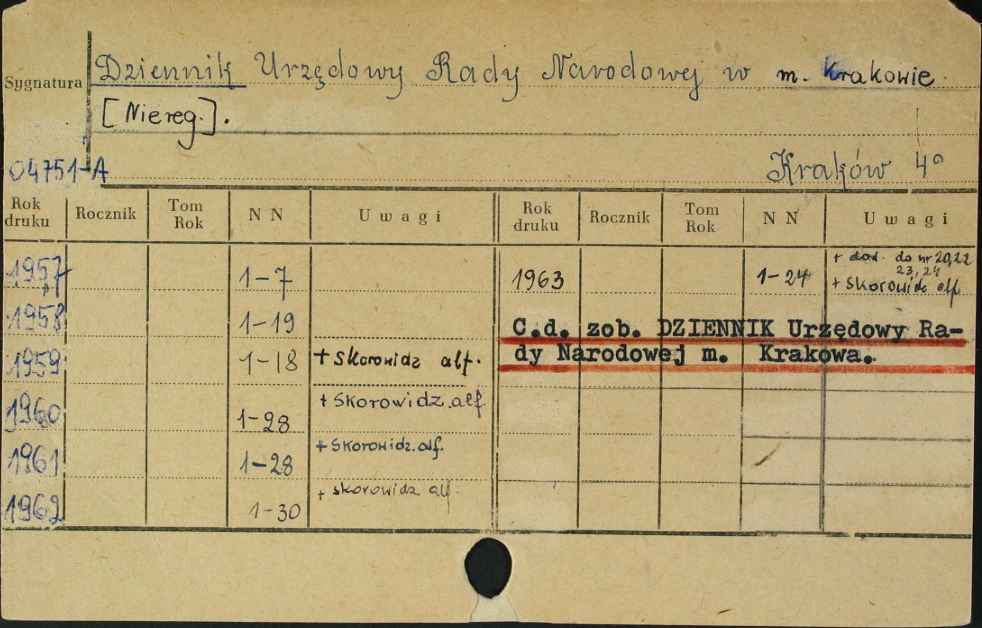 Sygnatura
Dziennik Urzędowy Rady Narodowej w m. Krakowie.
[Niereg.].
04751-A
Kraków 4°
Rok druku Rocznik Tom Rok NN Uwagi Rok druku Rocznik Tom Rok NN Uwagi
1957 1-7 1963 1-24 + dod. do nr 20,22
23,24
+ skorowidz alf.
1958 1-19 C.d. zob. DZIENNIK Urzędowy Ra-
1959 1-18 + skorowidz alf. dy Narodowej m. Krakowa.
1960 1-28 + skorowidz.alf
1961 1-28 + skorowidz.alf.
1962 1-30 + skorowidz alf.